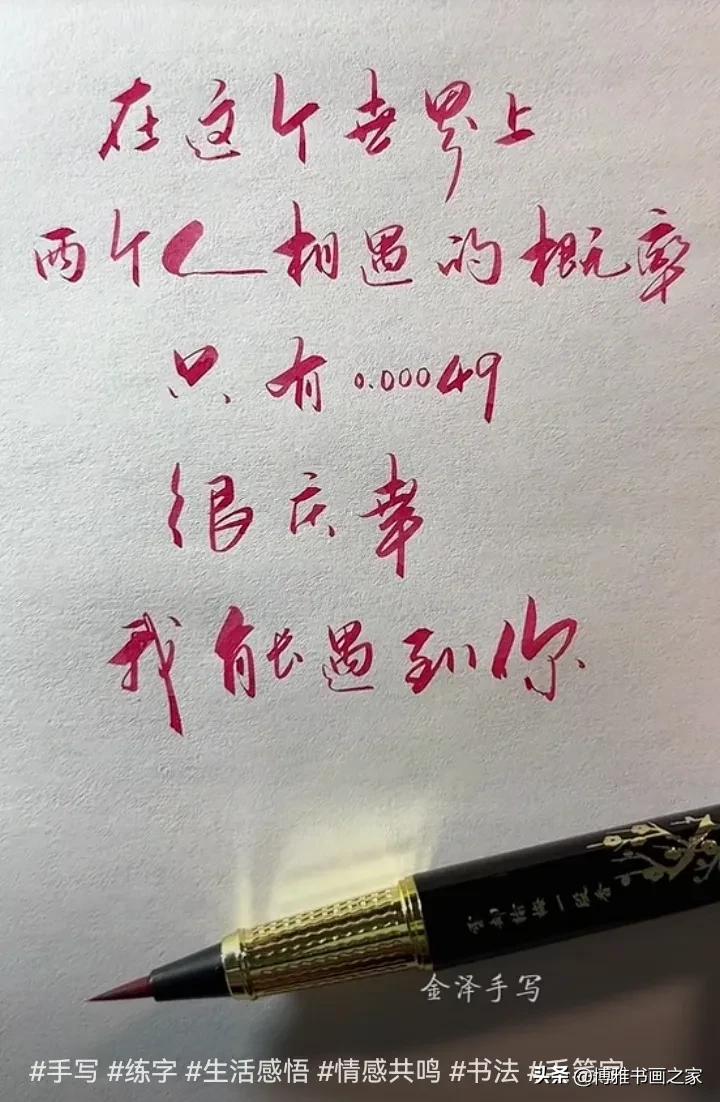 在这个世界上
两个人相遇的概率
只有0.00049
很庆幸
我能遇到你
金泽手写
#手写 #练字 #生活感悟 #情感共鸣 #书法
头条 @博雅书画之家